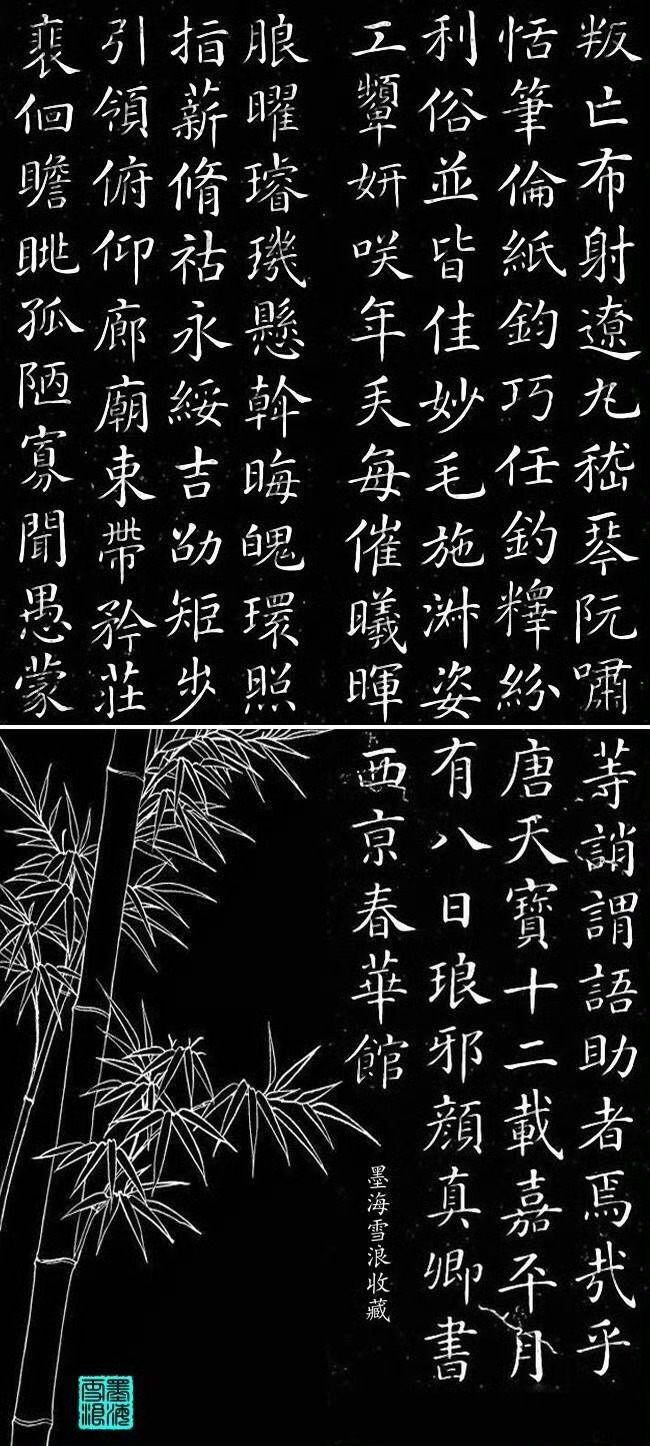 叛亡布射遼丸嵇琴阮嘯
恬筆倫紙鈞巧任釣釋紛
利俗並皆佳妙毛施淑姿
工顰妍咲年矢每催曦暉
朖曜璿璣懸斡晦魄環照
指薪脩祜永綏吉劭矩步
引領俯仰廊廟束帶矜莊
裵佪瞻眺孤陋寡聞愚蒙
等誚謂語助者焉哉乎
唐天寶十二載嘉平月
有八日琅邪顏真卿書
西京春華館
墨海雪浪收藏
墨海雪浪